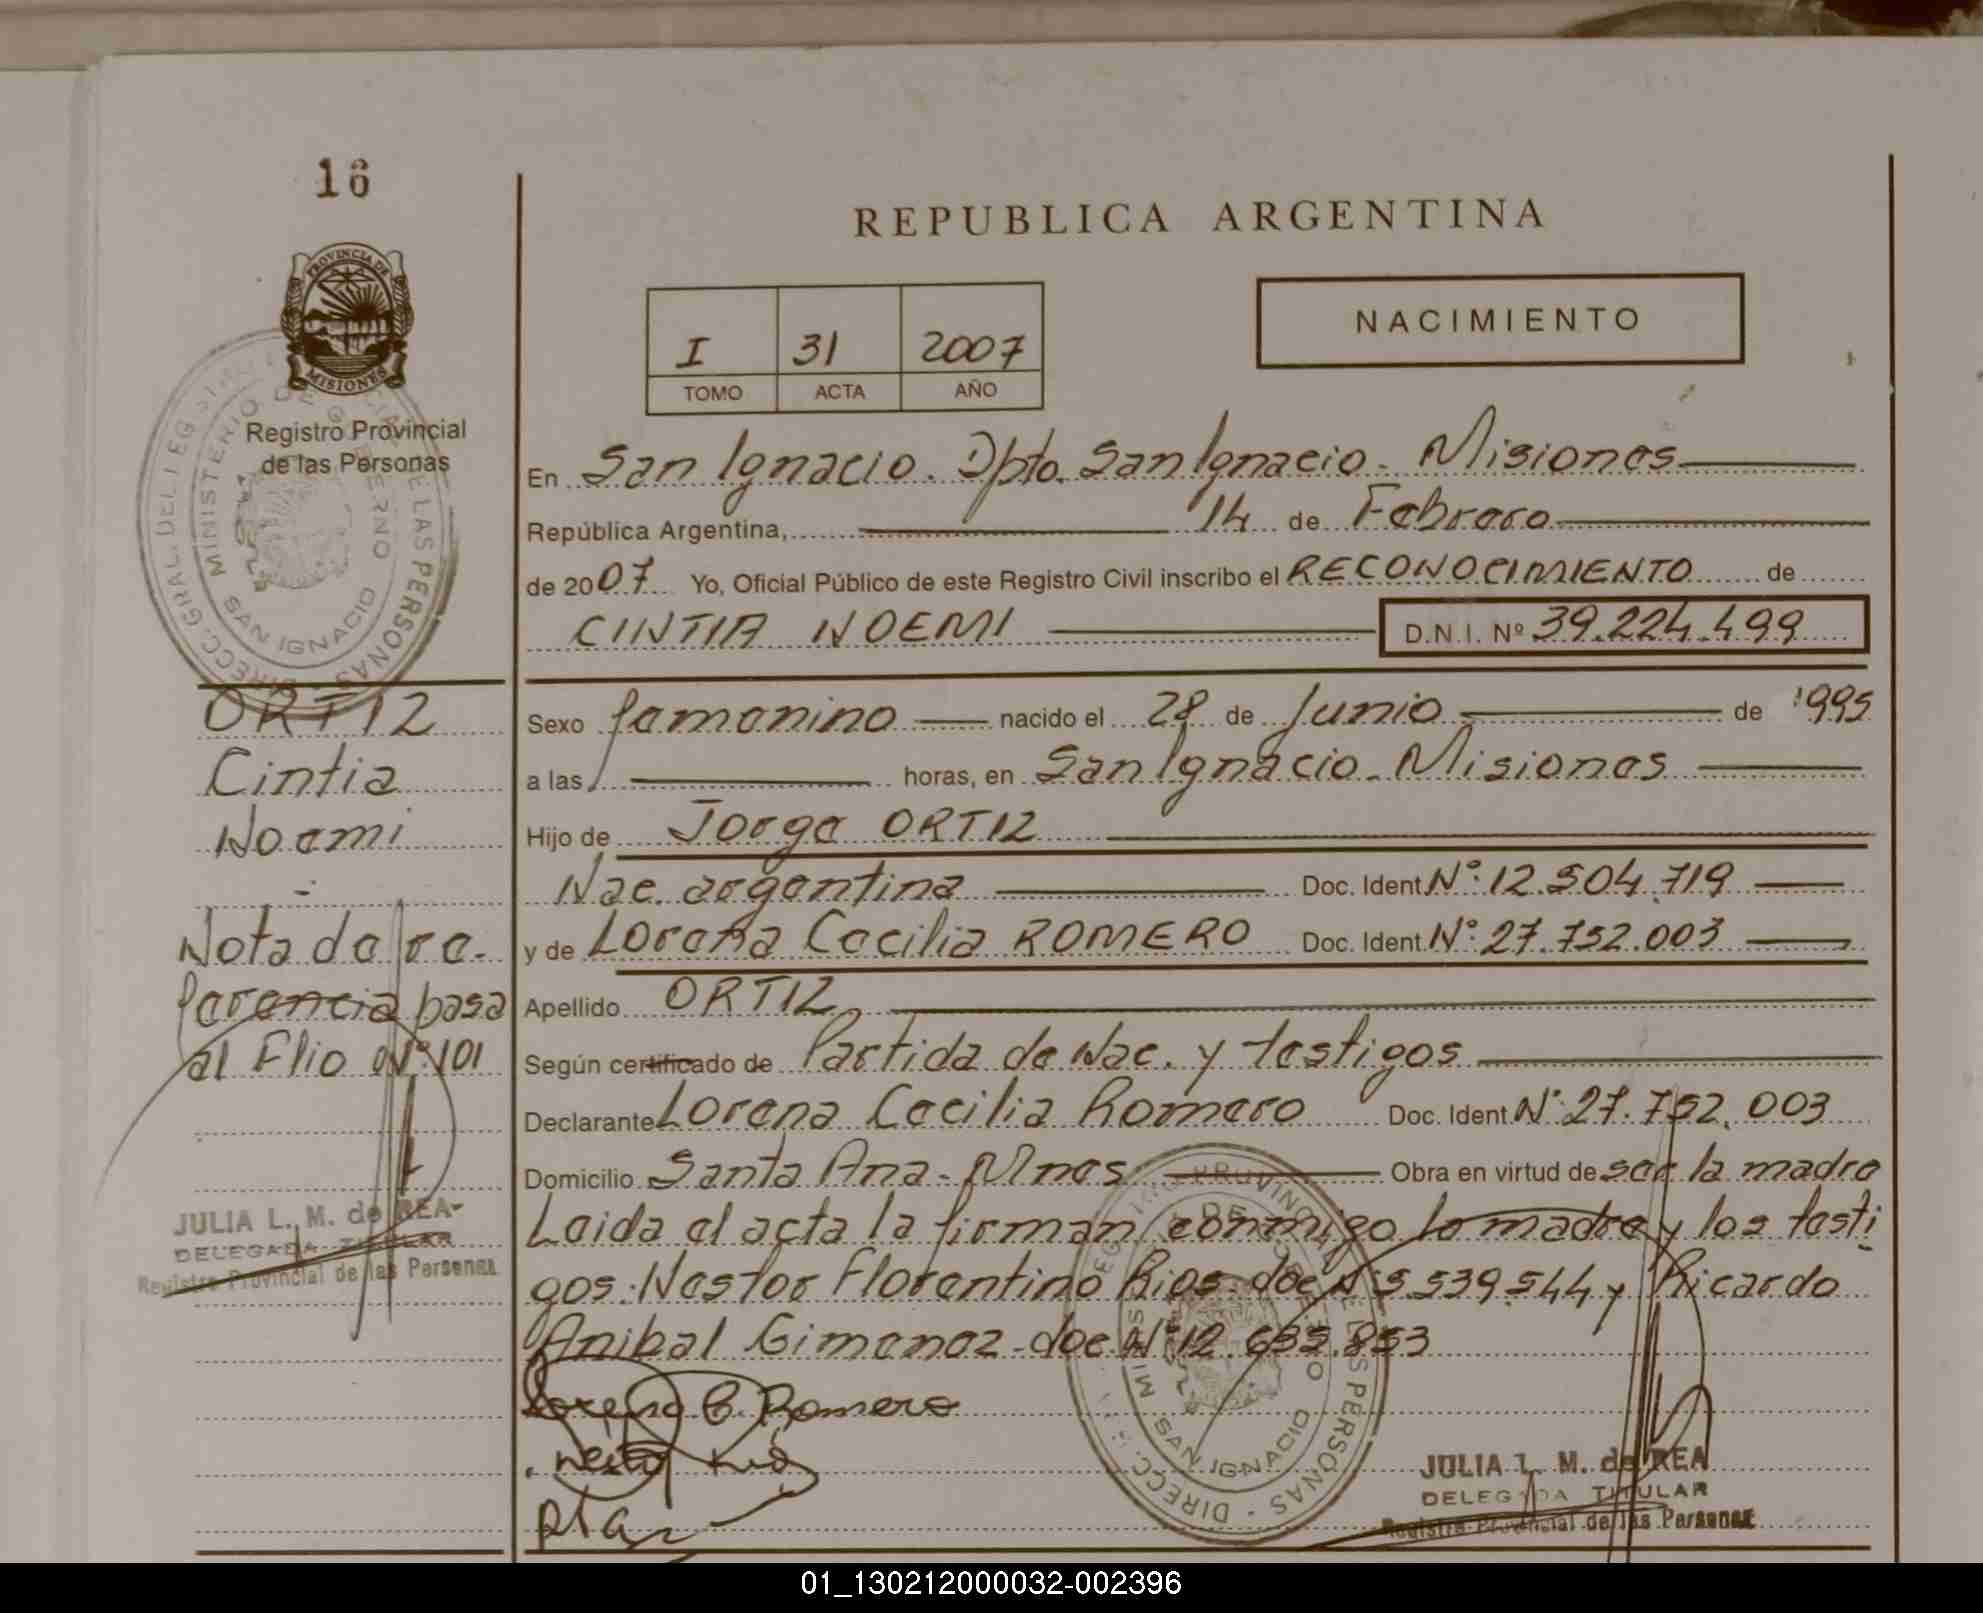 16
REPUBLICA ARGENTINA
PROVINCIA DE MISIONES
Registro Provincial
de las Personas
I 31 2007
TOMO ACTA AÑO
NACIMIENTO
En San Ignacio. Dpto. San Ignacio. Misiones
República Argentina, 14 de Febrero
de 2007 Yo, Oficial Público de este Registro Civil inscribo el RECONOCIMIENTO de
CINTIA NOEMI D.N.I. Nº 39.224.499
DIRECC. GRAL. DEL REGISTRO PROVINCIAL DE LAS PERSONAS
MINISTERIO DE GOBIERNO
SAN IGNACIO
ORTIZ
Cintia
Noemi
Nota de re-
ferencia pasa
al Flio Nº 101
JULIA L. M. de REA
DELEGADA TITULAR
Registro Provincial de las Personas
Sexo femenino nacido el 28 de Junio de 1995
a las horas, en San Ignacio. Misiones
Hijo de Jorge ORTIZ
Nac. argentina Doc. Ident. Nº: 12.504.719
y de Lorena Cecilia ROMERO Doc. Ident. Nº: 27.752.003
Apellido ORTIZ
Según certificado de Partida de Nac. y testigos
Declarante Lorena Cecilia Romero Doc. Ident. Nº 27.752.003
Domicilio Santa Ana - Mnes Obra en virtud de ser la madre
Leida el acta la firman conmigo la madre y los testi
gos: Nestor Florentino Rios doc Nº 5.539.544 y Ricardo
Anibal Gimenez - doc. Nº 12.635.853
Lorena C. Romero
SAN IGNACIO
JULIA L. M. de REA
DELEGADA TITULAR
Registro Provincial de las Personas
01_130212000032-002396